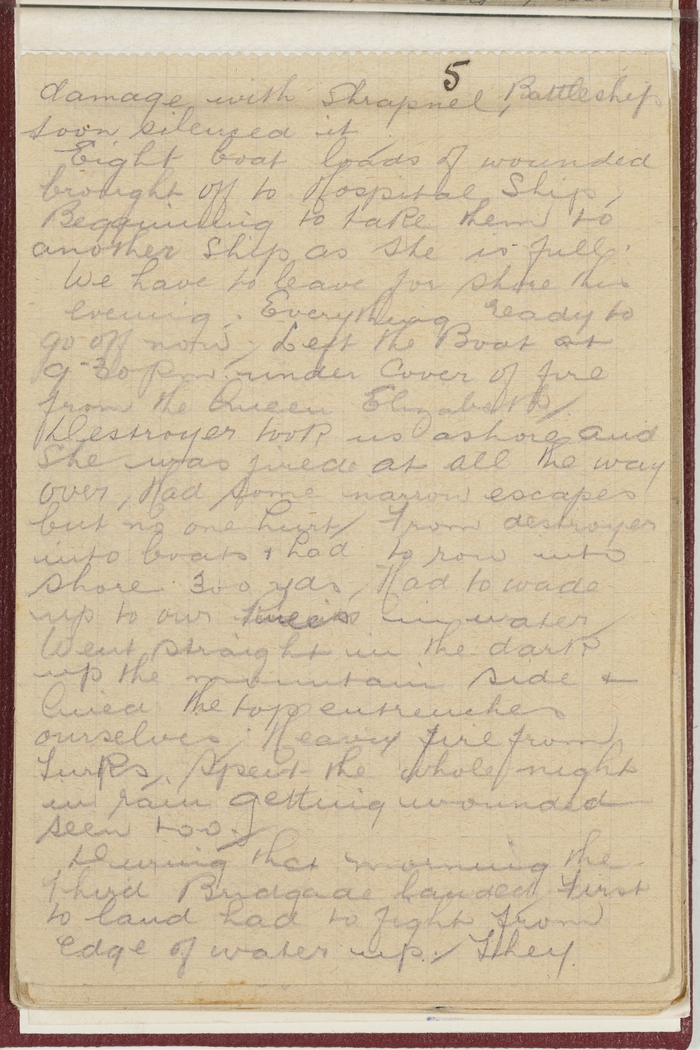 5
damage with Shrapnel, Battleship
soon silenced it
Eight boat loads of wounded
brought off to Hospital Ship,
Beggining to take them to
another Ship as she is full.
We have to leave for shore this
evening. Everything ready to
go off now, Left the Boat at
9-30 pm under Cover of fire
from the Queen Elizabeth,
Destroyer took us ashore and
She was fired at all the way
over, Had some narrow escapes
but no one hurt, From destroyer
into boats & had to row into
shore 300 yds, Had to wade
up to our knees in water
Went straight in the dark
up the mountain side &
lined the top entrenches
ourselves, Heavy fire from
Turks, Spent the whole night
in rain getting wounded
seen too.
During that morning the
Third Bridgade landed First
to land had to fight from
Edge of water up. They